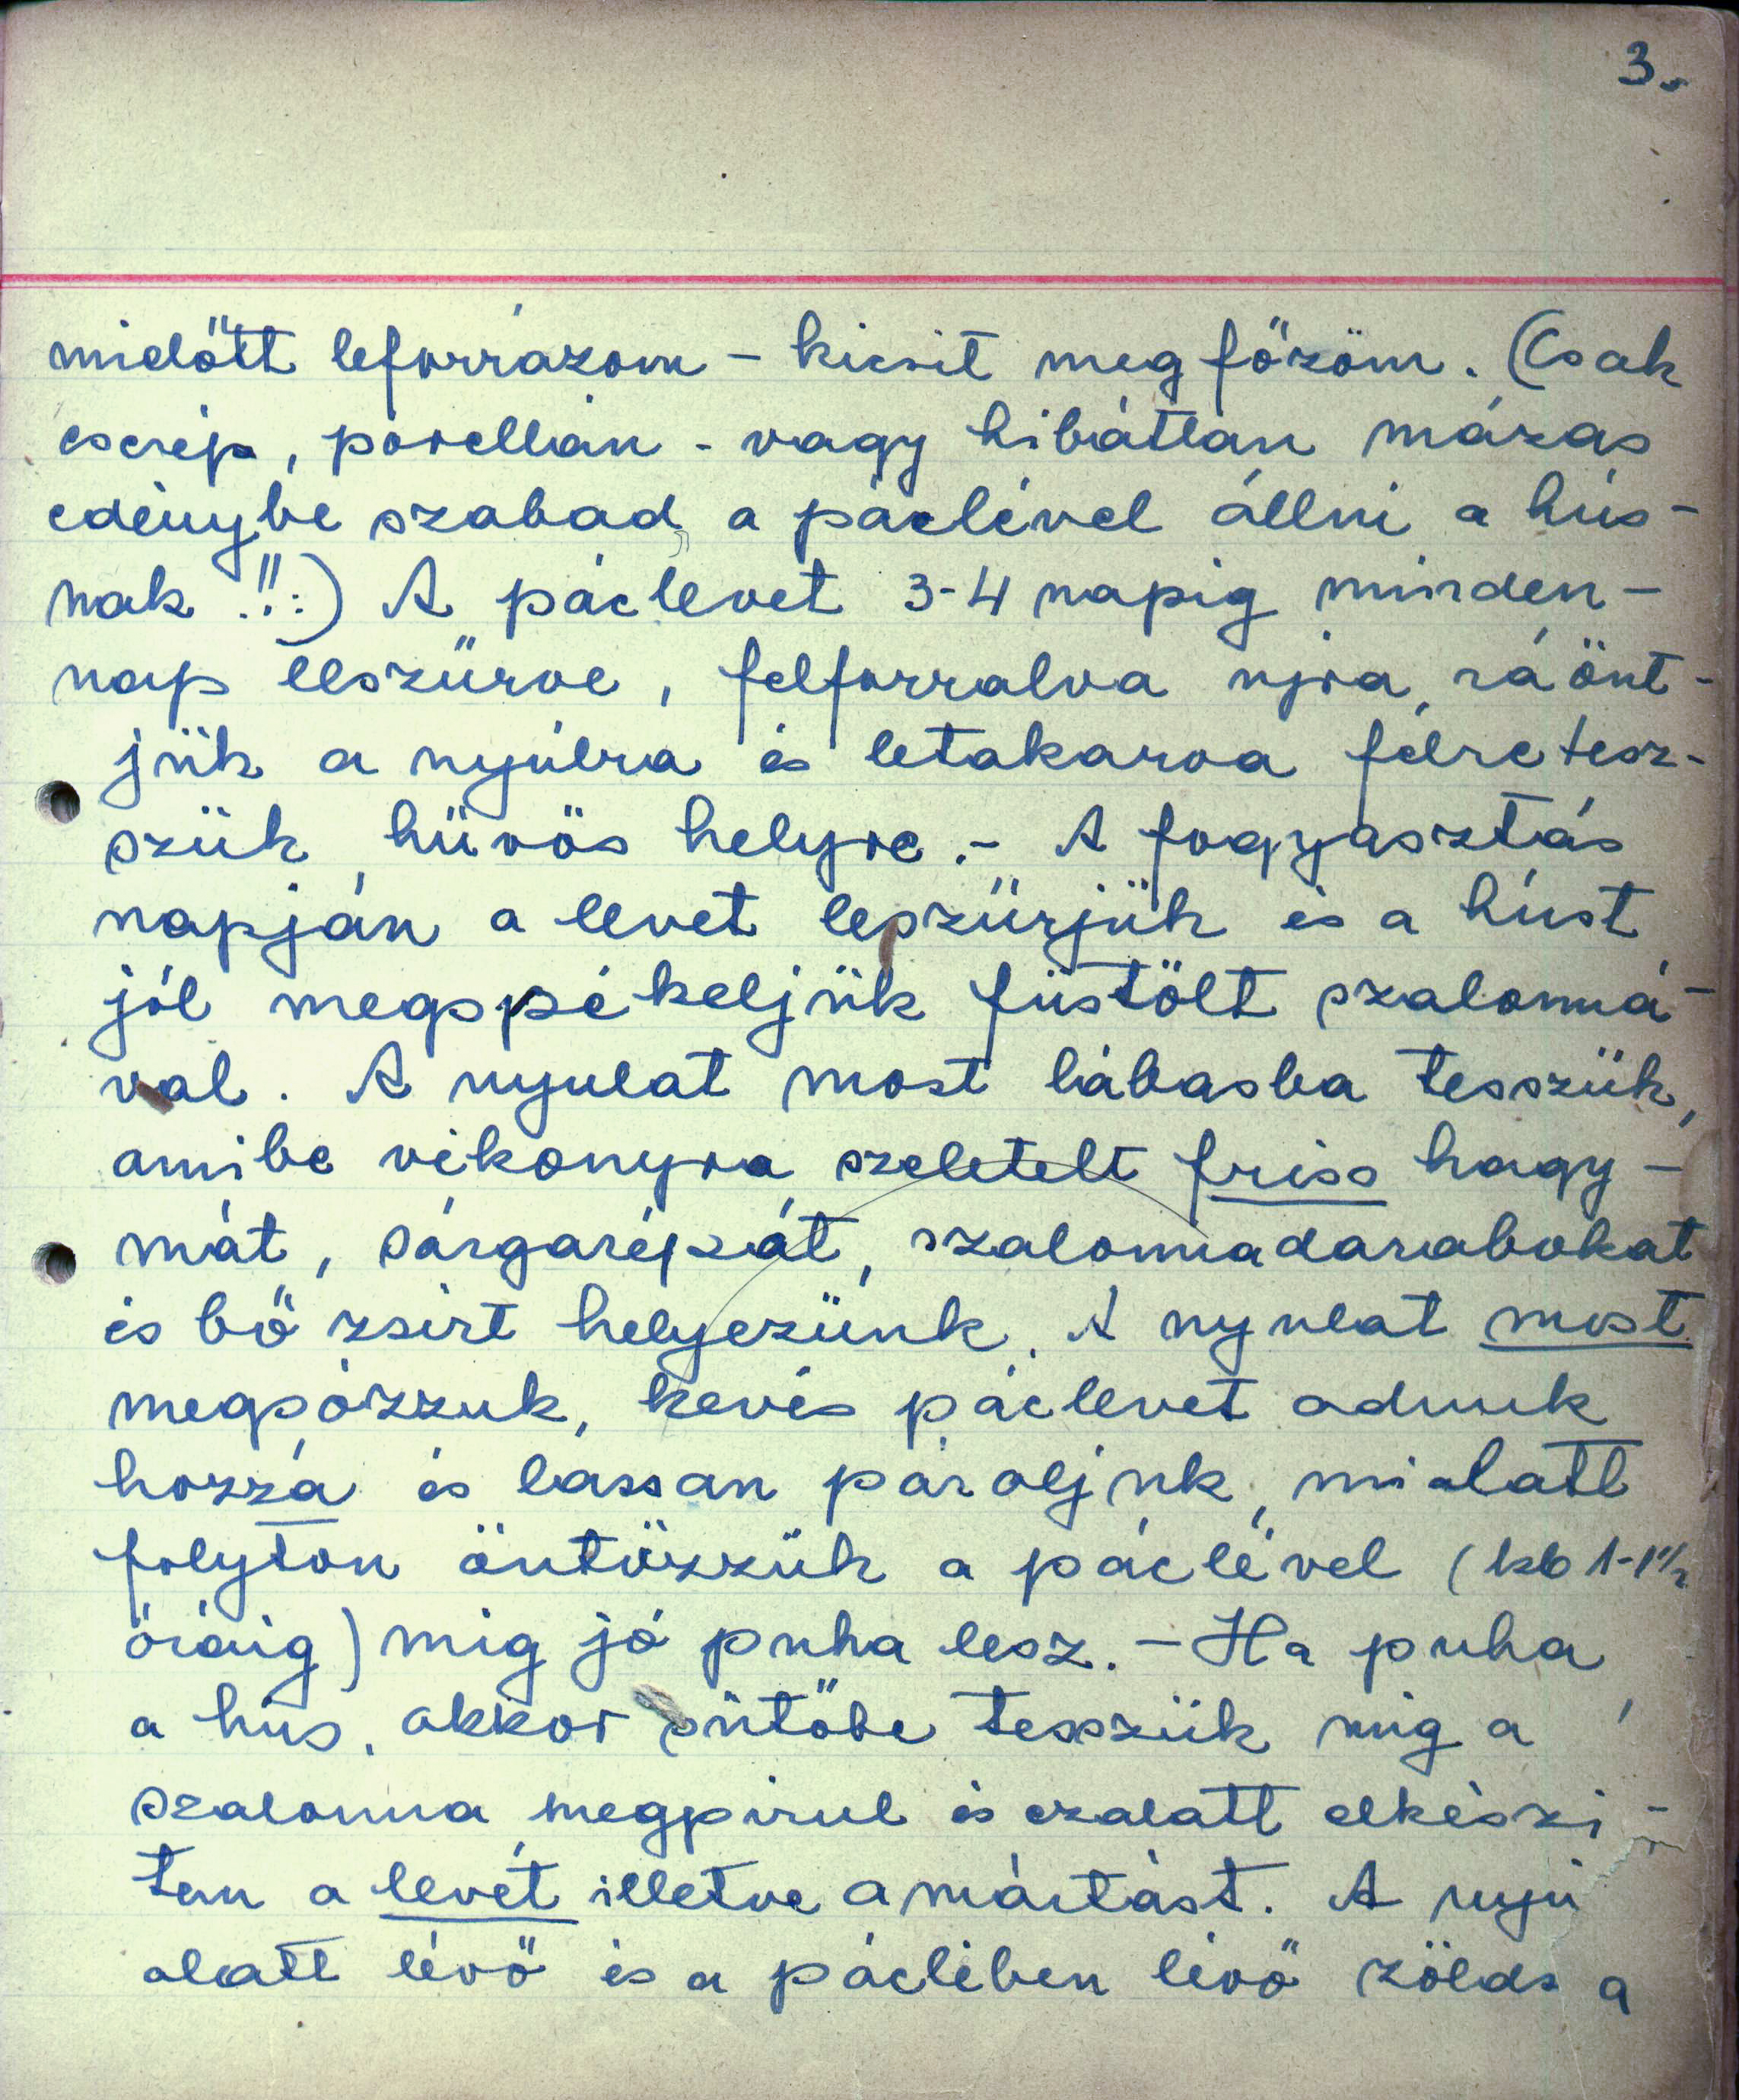 3.
midőtt leforrázom – kicsit megfőzöm. (Csak
cserép, porcellán - vagy hibátlan mázas
edénybe szabad a páclével állni a hús-
nak!!:) A páclevet 3-4 napig minden-
nap leszűrve, felforralva ujra ráönt-
jük a nyúlra és letakarva félretesz-
szük hüvös helyre.- A fogyasztás
napján a levet leszűrjük és a húst
jól megspékeljük füstölt szalonná-
val. A nyulat most lábasba tesszük,
amibe vékonyra szeletelt friss hagy-
mát, sárgarépát, szalonnadarabokat
és bő zsirt helyezünk. A nyulat most
megpózzuk, kevés páclevet adunk
hozzá és lassan pároljuk, mialatt
folyton öntözzük a páclével (kb 1-1½
óráig) mig jó puha lesz. – Ha puha
a hús, akkor sütőbe tesszük mig a
szalonna megpirul és ezalatt elkészi-
tem a levét illetve a mártást. A nyú
alatt lévő és a páclében lévő zölds a